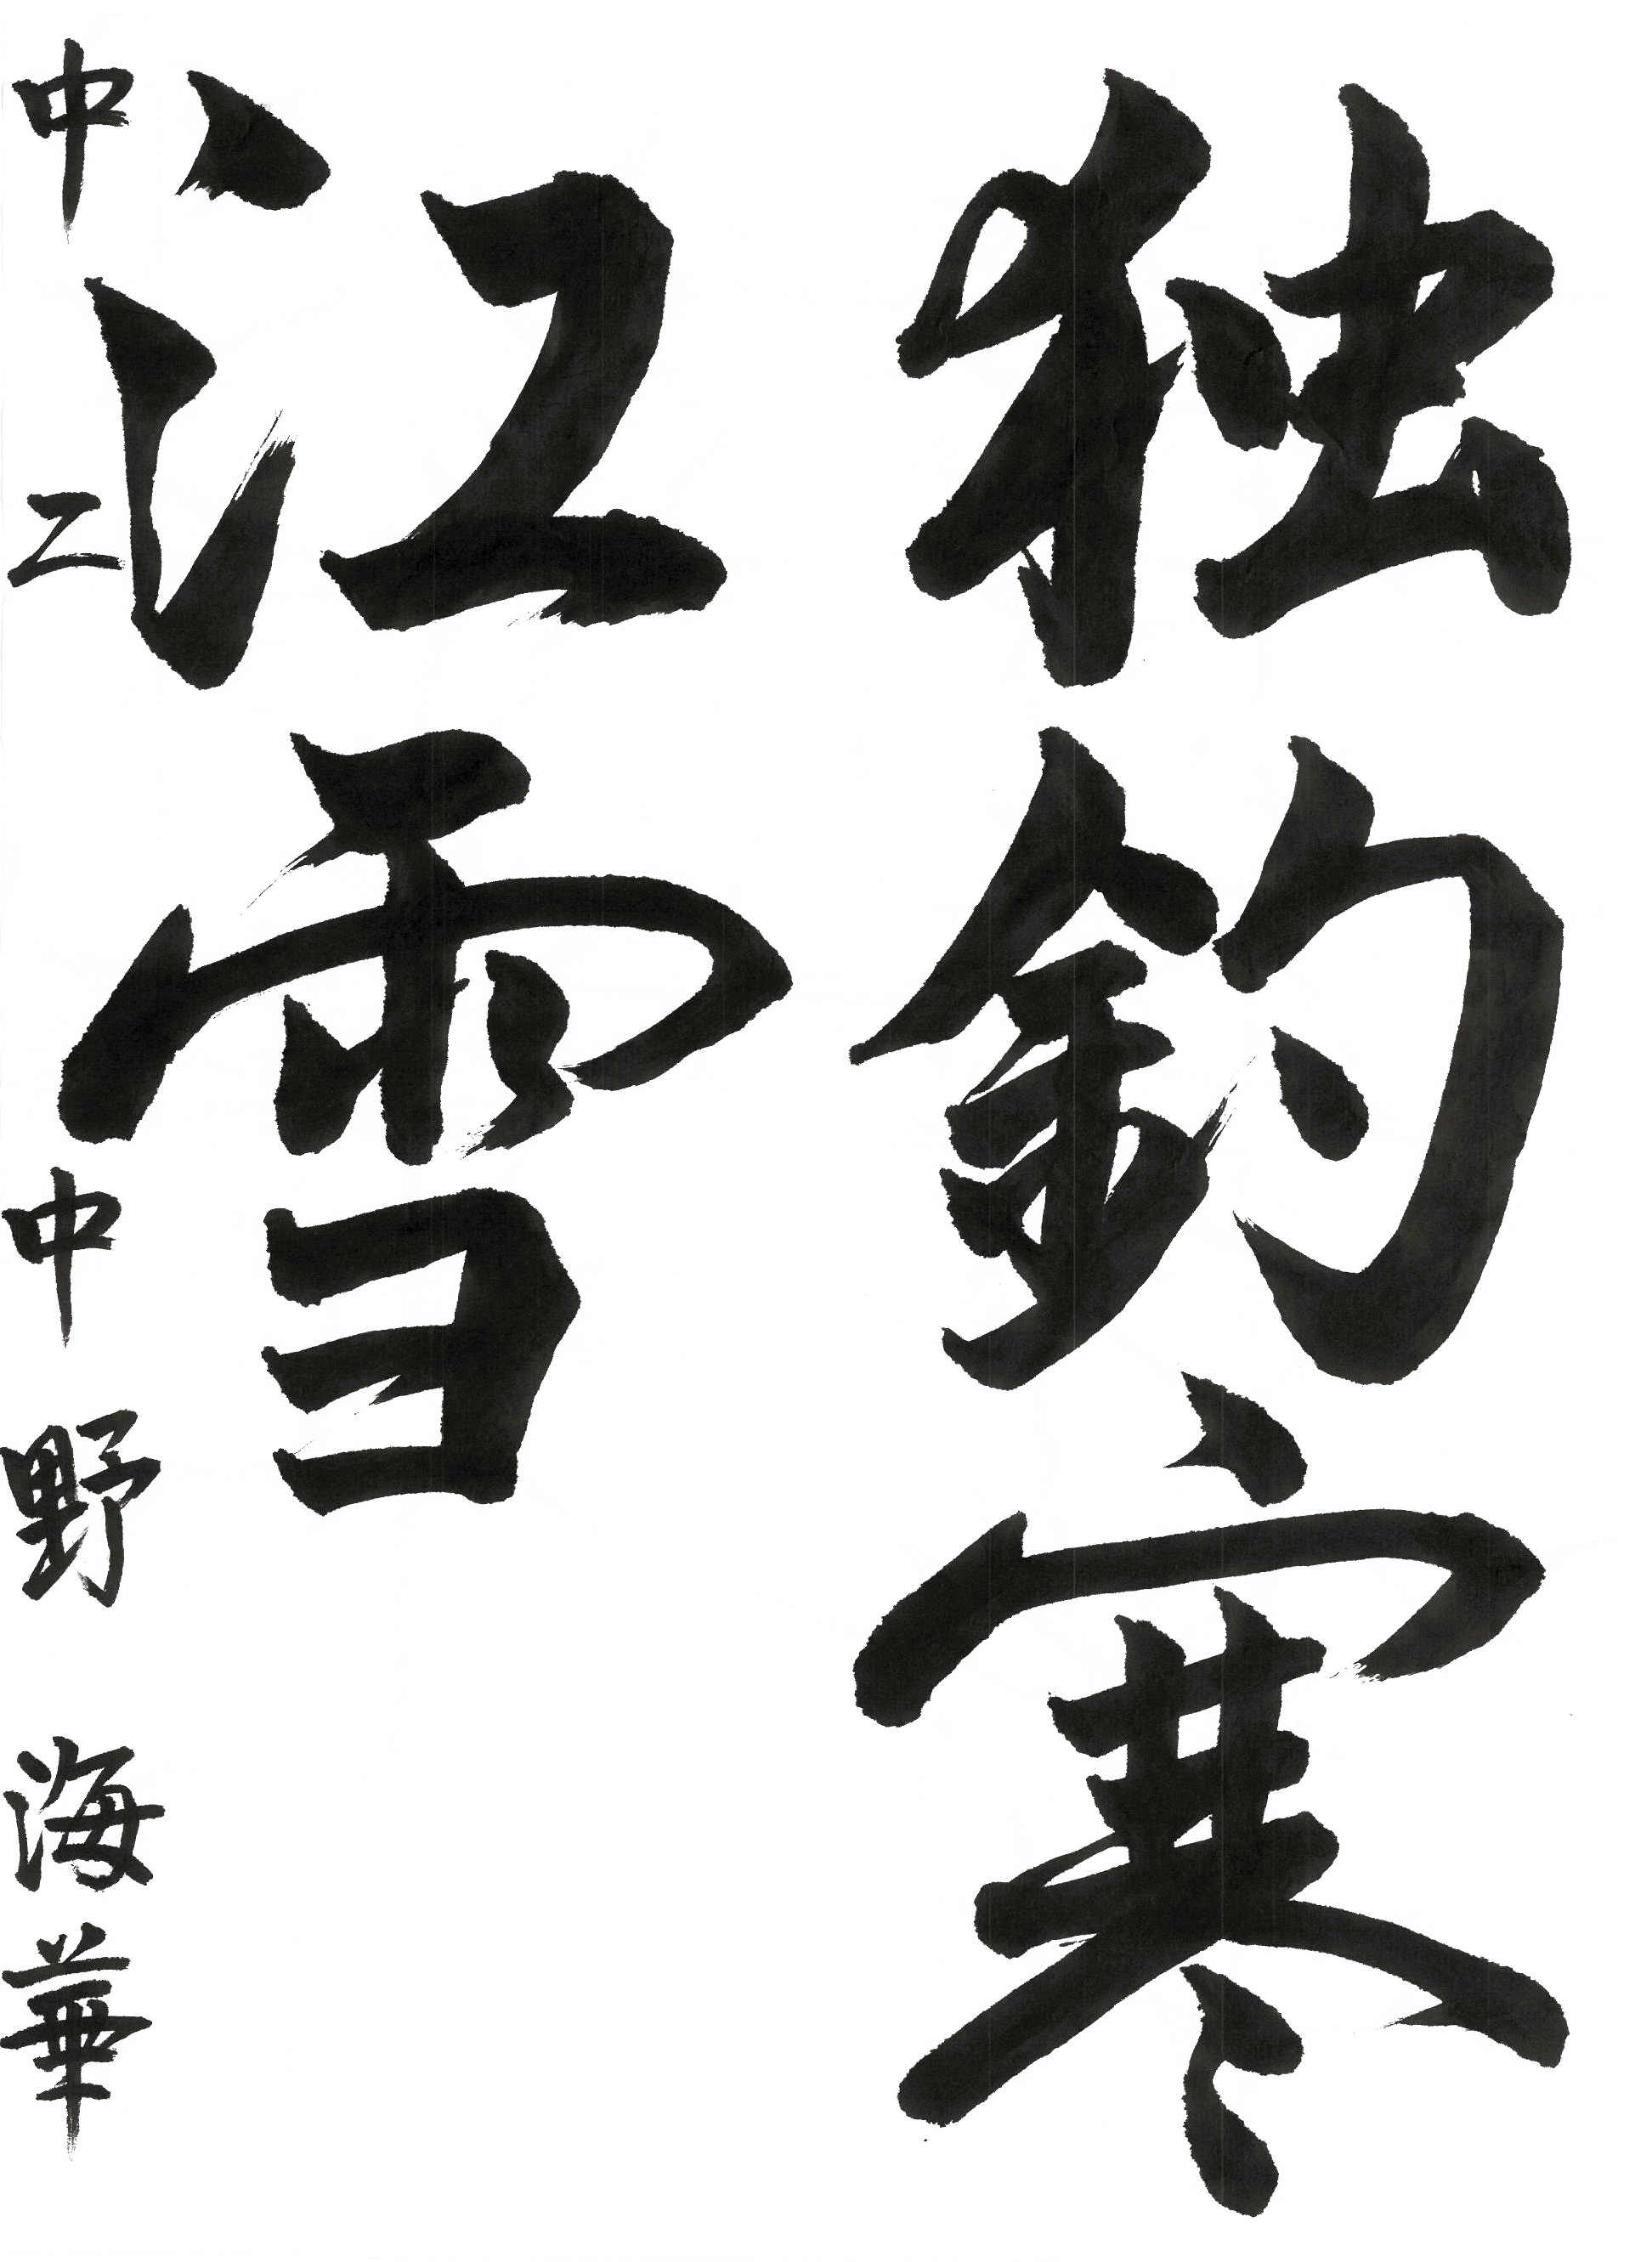 独釣寒
江雪
中二 中野海華